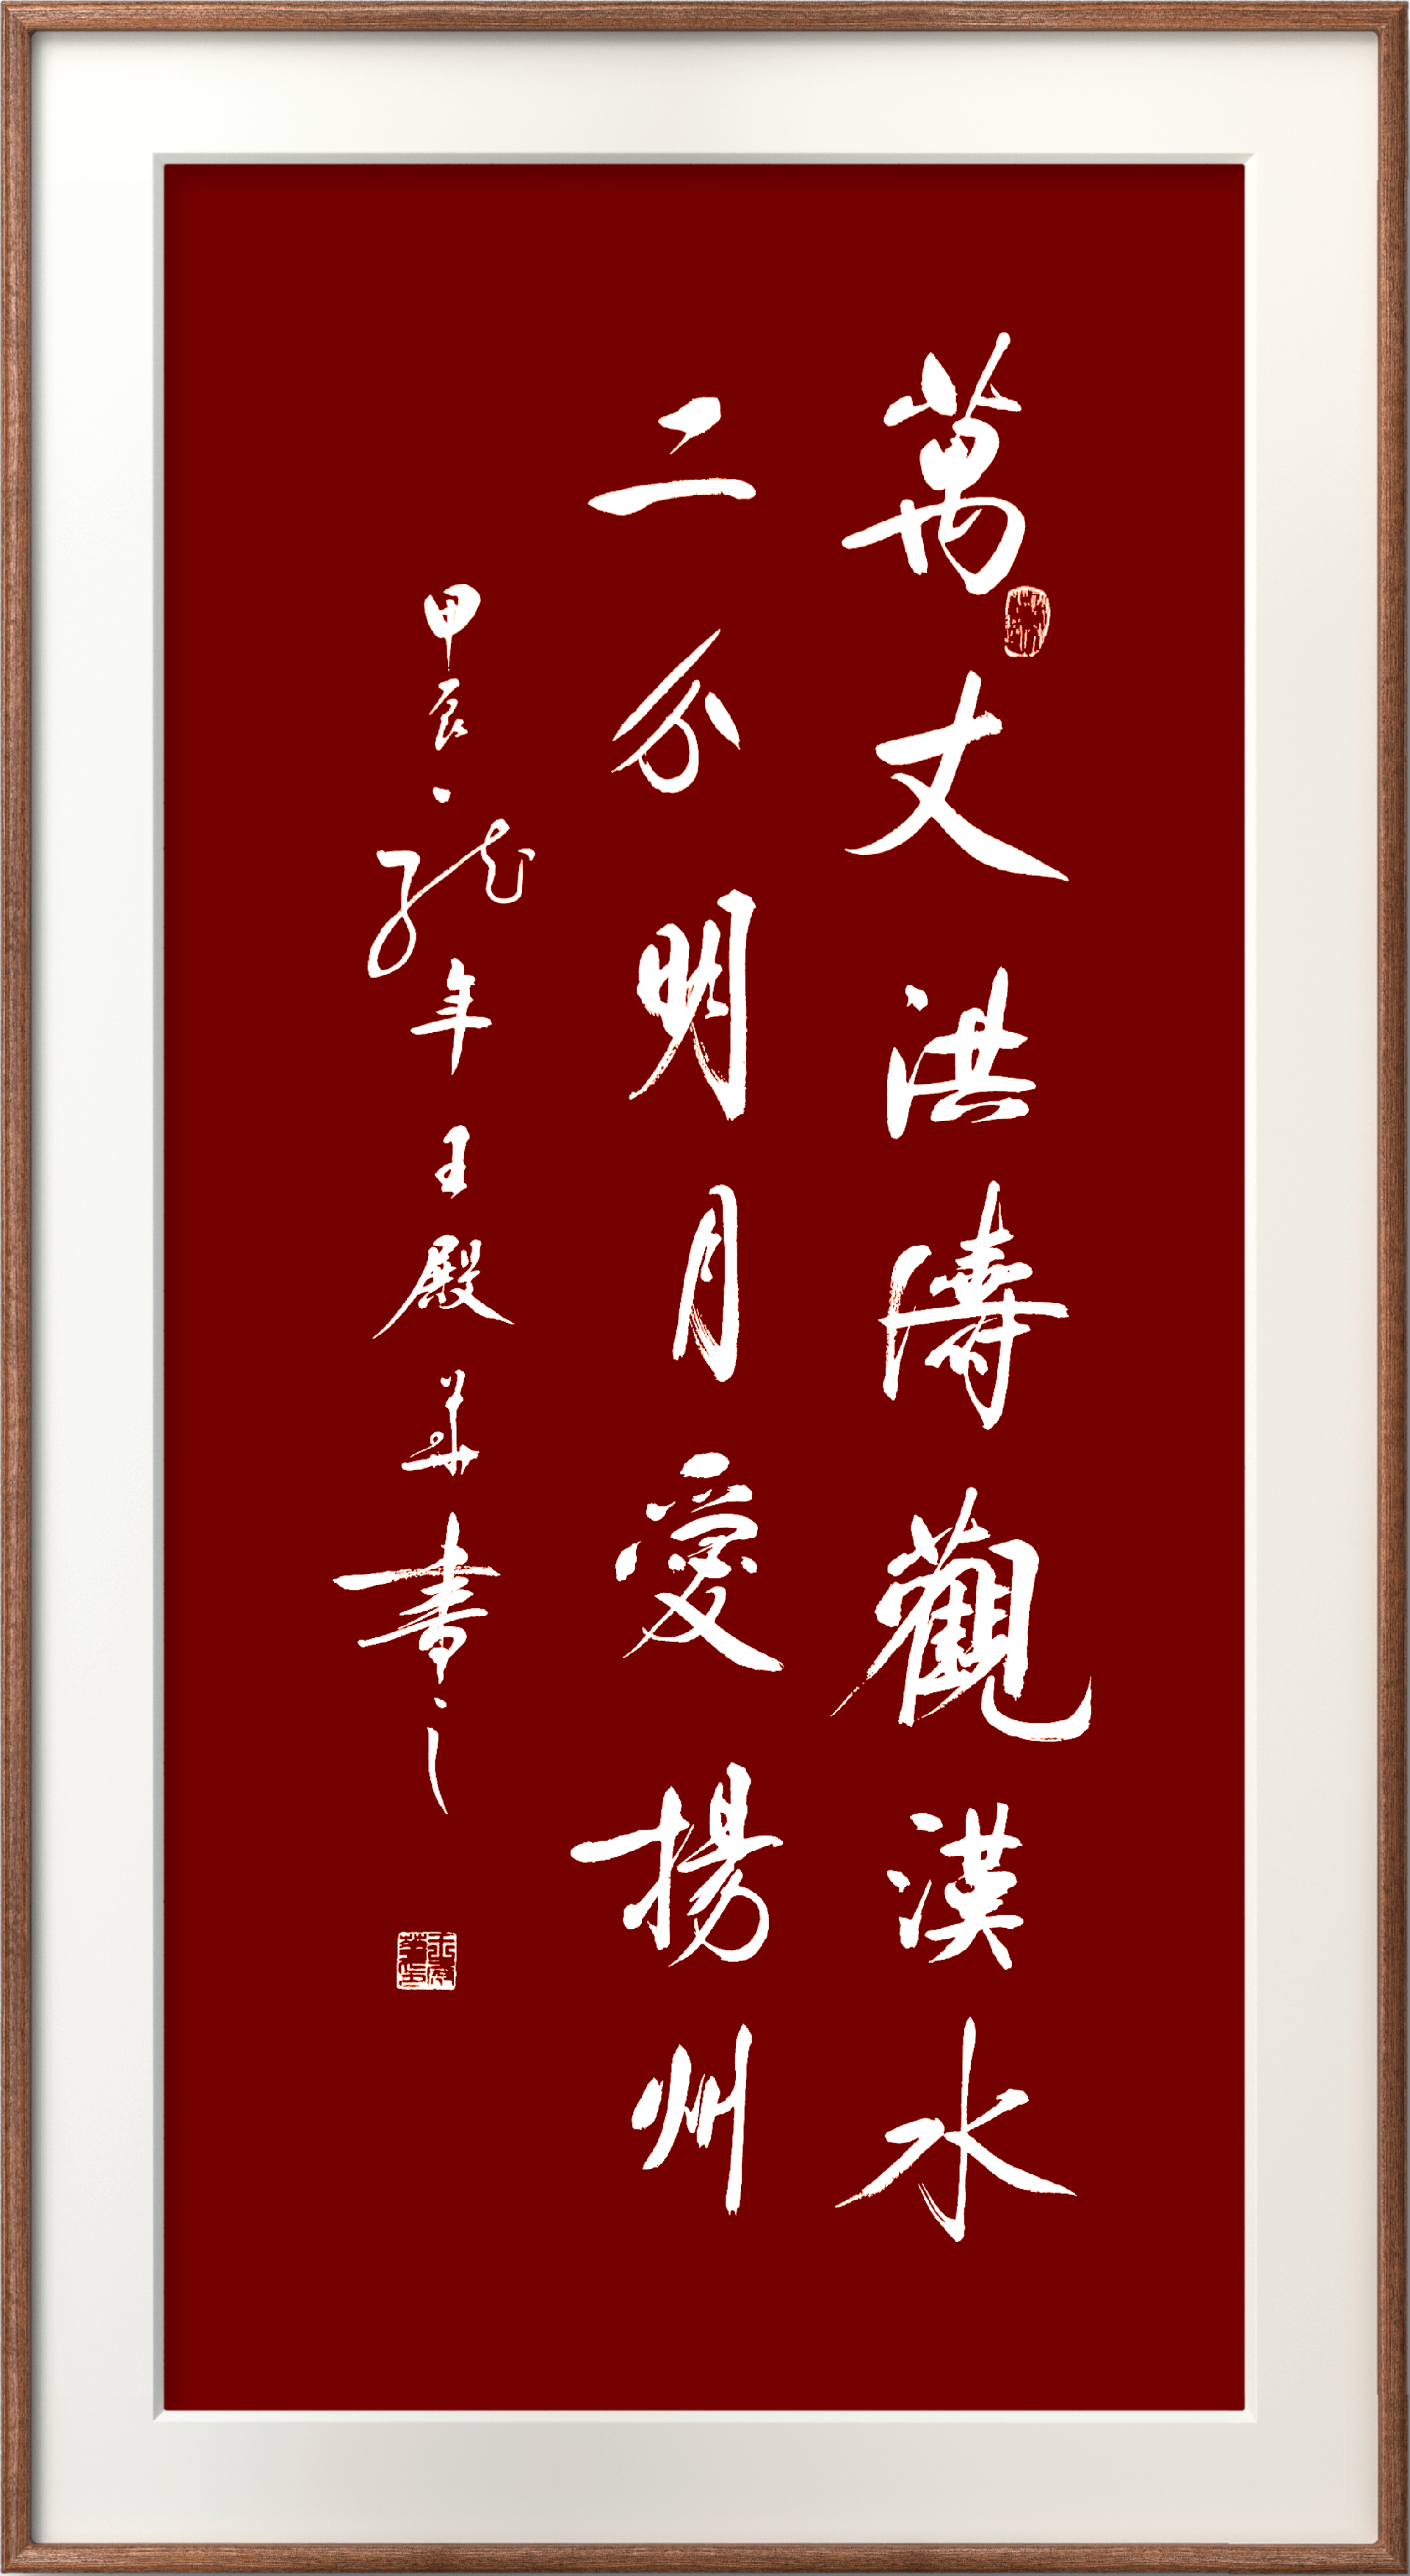 萬丈洪濤觀漢水
二分明月愛揚州
甲辰龍年王殿華書